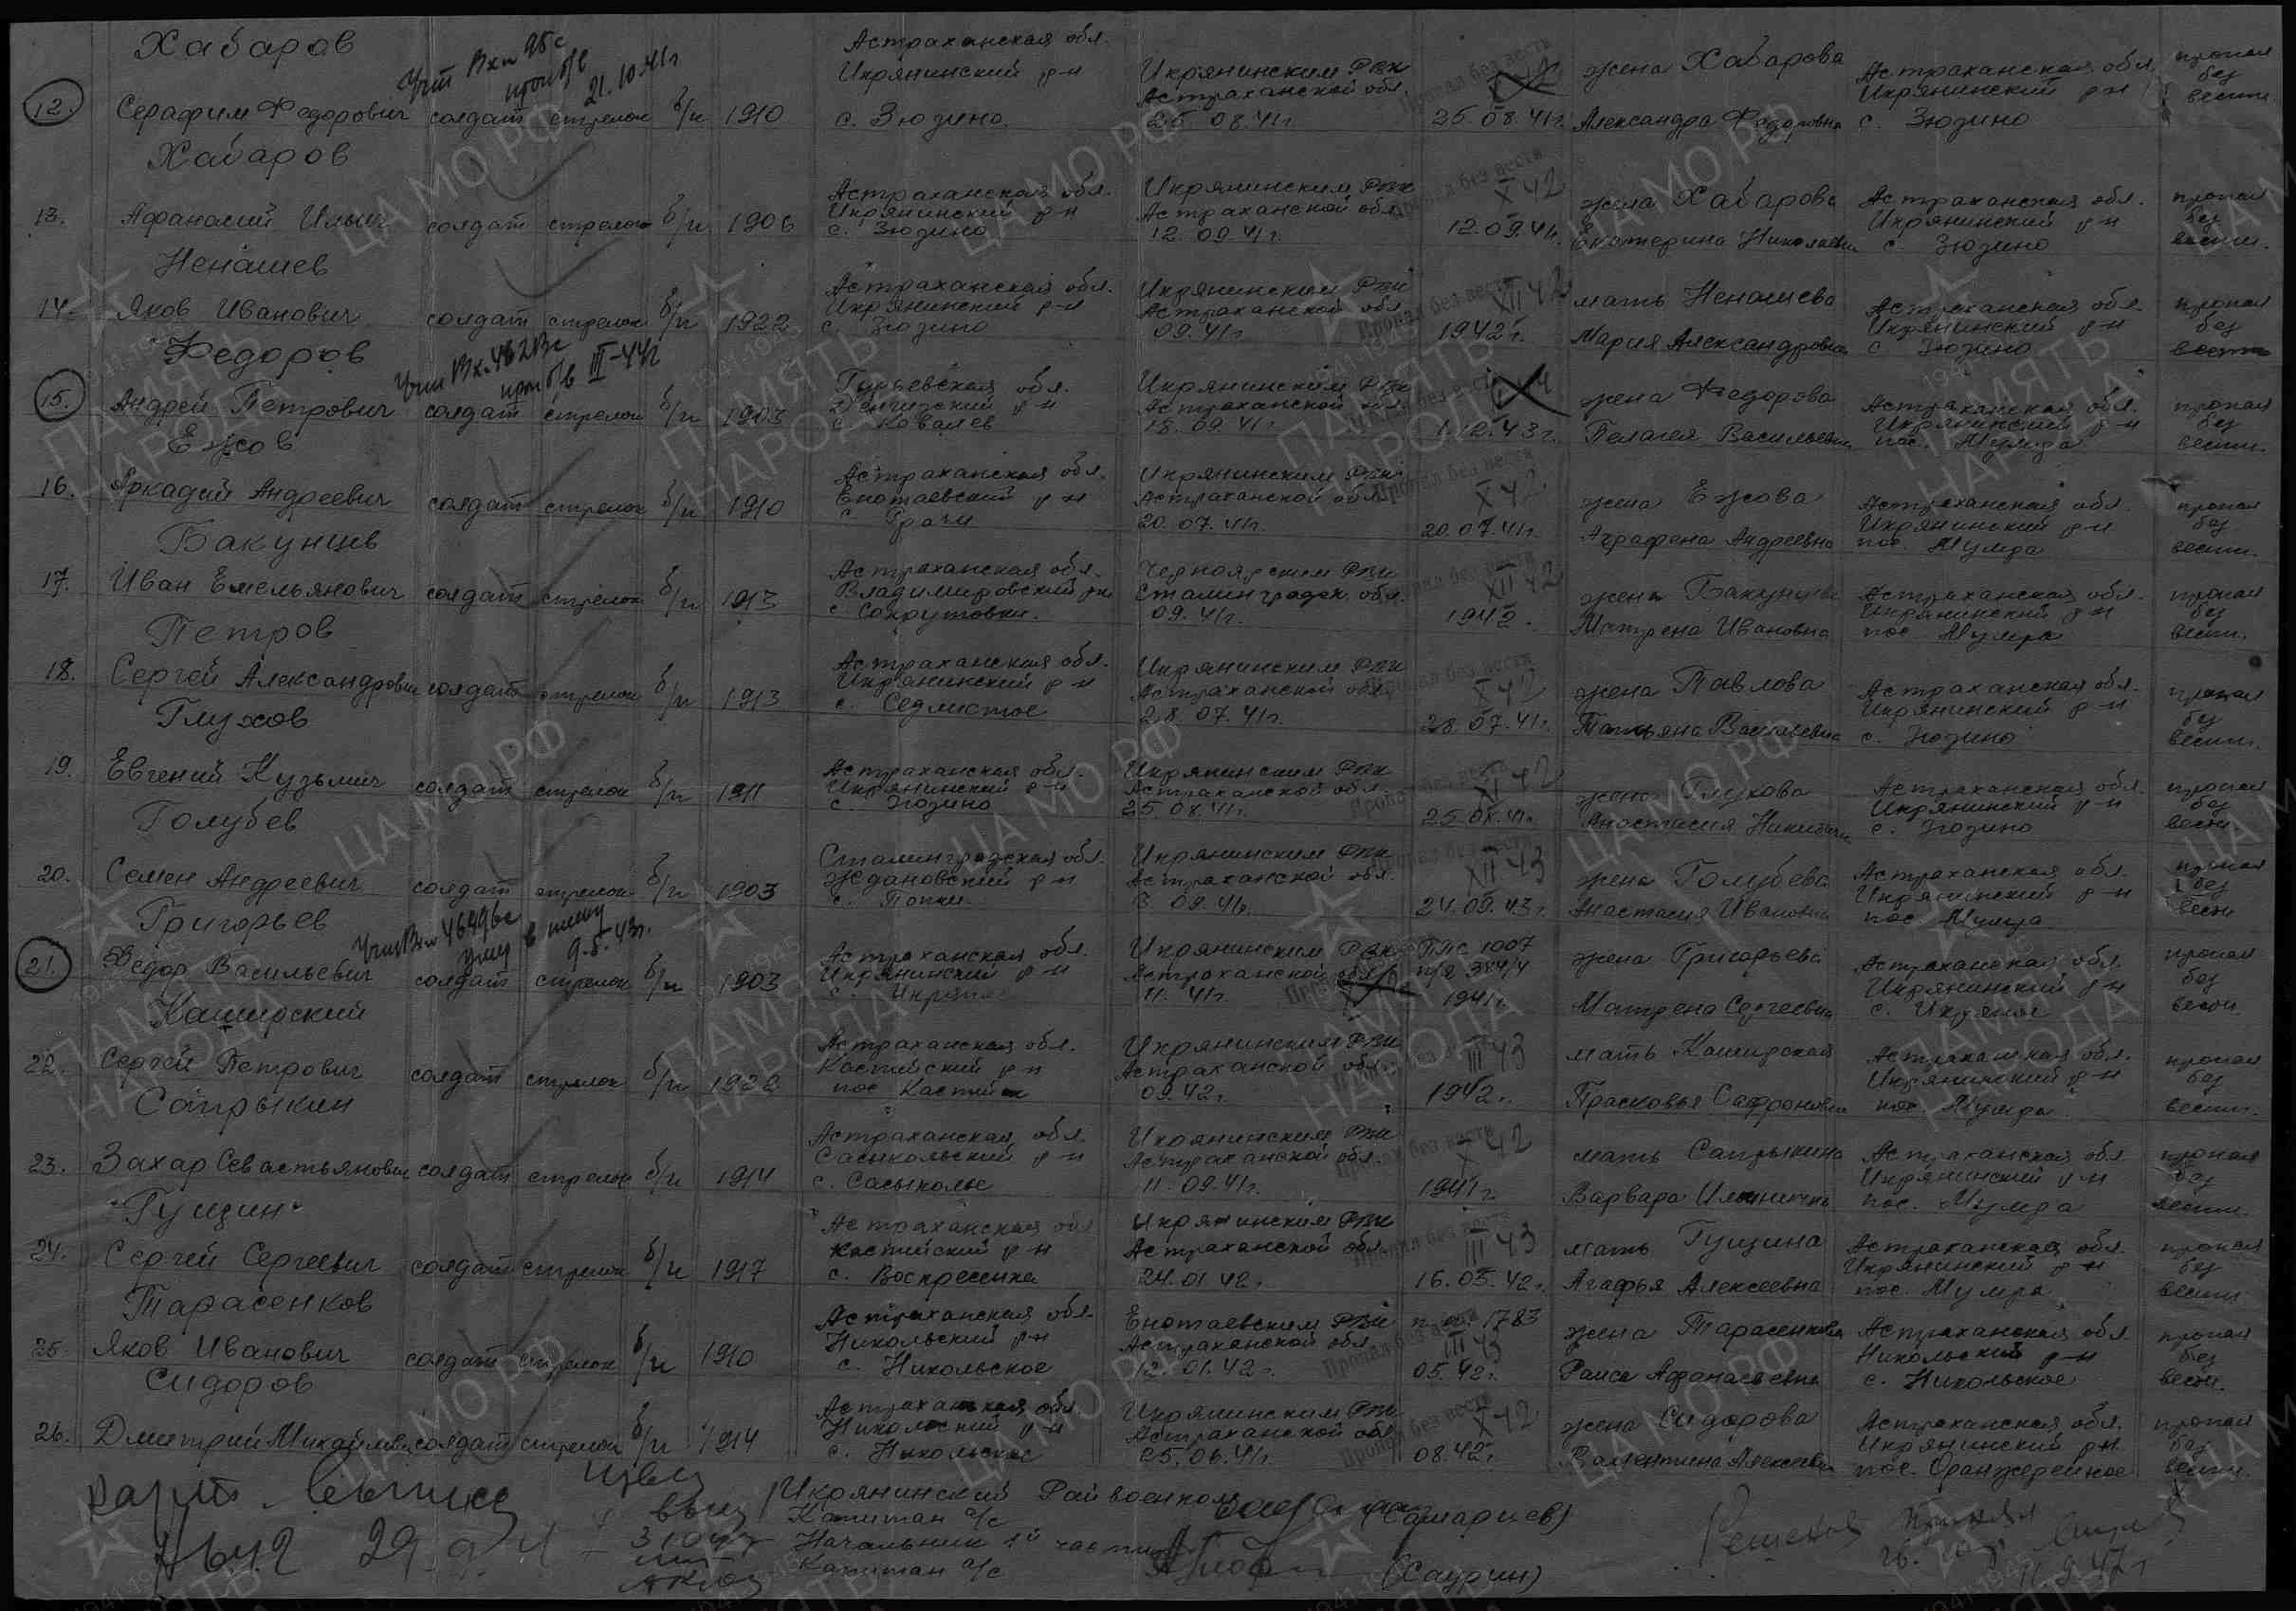 Хабаров
12. Серафим Федорович солдат стрелок б/п 1910
Учт Вх № 95с 21.10.41г
Астраханская обл. Икрянинский р-н с. Зюзино
Икрянинским РВК Астраханской обл. 25.08.41г.
25.08.41г.
жена Хабарова Александра Федоровна
Астраханская обл. Икрянинский р-н с. Зюзино
пропал без вести
Хабаров
13. Афанасий Ильич солдат стрелок б/п 1906
Астраханская обл. Икрянинский р-н с. Зюзино
Икрянинским РВК Астраханской обл. 12.09.41г.
Пропал без вести X 42
12.09.41г.
жена Хабарова Екатерина Николаевна
Астраханская обл. Икрянинский р-н с. Зюзино
пропал без вести.
Ненашев
14. Яков Иванович солдат стрелок б/п 1922
Астраханская обл. Икрянинский р-н с. Зюзино
Икрянинским РВК Астраханской обл. 09.41г
Пропал без вести XII 42
1942г.
мать Ненашева Мария Александровна
Астраханская обл. Икрянинский р-н с Зюзино
пропал без вести
Федоров
15. Андрей Петрович солдат стрелок б/п 1903
Учт Вх. 4621с III-44г
Гурьевская обл. Денгизский р-н с. Ковалев
Икрянинским РВК Астраханской обл. 18.09.41г
1.12.43г.
жена Федорова Пелагея Васильевна
Астраханская обл. Икрянинский р-н пос. Мумра
пропал без вести.
Ежов
16. Аркадий Андреевич солдат стрелок б/п 1910
Астраханская обл. Енотаевский р-н с Грачи
Икрянинским РВК Астраханской обл. 20.07.41г.
Пропал без вести X 42
20.07.41г.
жена Ежова Аграфена Андреевна
Астраханская обл. Икрянинский р-н пос. Мумра
пропал без вести.
Бакунцев
17. Иван Емельянович солдат стрелок б/п 1913
Астраханская обл. Владимировский р-н с Сокрутовки.
Черноярским РВК Сталинградск. обл. 09.41г.
Пропал без вести XII 42
1942.
жена Бакунцева Матрена Ивановна
Астраханская обл. Икрянинский р-н пос. Мумра
пропал без вести.
Петров
18. Сергей Александрович солдат стрелок б/п 1913
Астраханская обл. Икрянинский р-н с. Седлистое
Икрянинским РВК Астраханской обл. 28.07.41г.
Пропал без вести X 42
28.07.41г.
жена Павлова Татьяна Васильевна
Астраханская обл. Икрянинский р-н с. Зюзино
пропал без вести.
Глухов
19. Евгений Кузьмич солдат стрелок б/п 1911
Астраханская обл. Икрянинский р-н с. Зюзино
Икрянинским РВК Астраханской обл. 25.08.41г.
Пропал без вести XI 42
25.08.41г.
жена Глухова Анастасия
Астраханская обл. Икрянинский р-н с. Зюзино
пропал без вести.
Голубев
20. Семен Андреевич солдат стрелок б/п 1903
Сталинградская обл. Ждановский р-н с. Попки
Икрянинским РВК Астраханской обл. 3.09.41г.
Пропал без вести XII 43
24.09.43г.
жена Голубева Анастасия Ивановна
Астраханская обл. Икрянинский р-н пос. Мумра
пропал без вести
Григорьев
21. Федор Васильевич солдат стрелок б/п 1903
Учт Вх № 46496с в плену 9.5.43г.
Астраханская обл. Икрянинский р-н с. Икряное
Икрянинским РВК Астраханской обл. 11.41г.
ППС 1007 п/я 384/4 1941г.
жена Григорьева Матрена Сергеевна
Астраханская обл. Икрянинский р-н с. Икряное
пропал без вести.
Каширский
22. Сергей Петрович солдат стрелок б/п 1922
Астраханская обл. Каспийский р-н пос Каспийск
Икрянинским РВК Астраханской обл. 09.42г.
III 43
1942г.
мать Каширская Прасковья Сафроновна
Астраханская обл. Икрянинский р-н пос. Мумра
пропал без вести.
Сапрыкин
23. Захар Севастьянович солдат стрелок б/п 1914
Астраханская обл. Сасыкольский р-н с. Сасыколье
Икрянинским РВК Астраханской обл 11.09.41г.
Пропал без вести X 42
1941г
мать Сапрыкина Варвара Ильинична
Астраханская обл. Икрянинский р-н пос. Мумра
пропал без вести.
Гущин
24. Сергей Сергеевич солдат стрелок б/п 1917
Астраханская обл Каспийский р-н с. Воскресенка
Икрянинским РВК Астраханской обл. 24.01.42г.
Пропал без вести III 43
16.05.42г.
мать Гущина Агафья Алексеевна
Астраханская обл. Икрянинский р-н пос. Мумра
пропал без вести
Тарасенков
25. Яков Иванович солдат стрелок б/п 1910
Астраханская обл. Никольский р-н с. Никольское
Енотаевским РВК Астраханской обл 12.01.42г.
1783
Пропал без вести III 43
05.42г.
жена Тарасенкова Раиса Афанасьевна
Астраханская обл Никольский р-н с. Никольское
пропал без вести.
Сидоров
26. Дмитрий Михайлович солдат стрелок б/п 1914
Астраханская обл. Никольский р-н с. Никольское
Икрянинским РВК Астраханской обл 25.06.41г.
Пропал без вести X 42
08.42г.
жена Сидорова Валентина Алексеевна
Астраханская обл. Икрянинский р-н пос. Оранжерейное
пропал без вести.
Икрянинский Райвоенком
Капитан а/с (Самарцев)
Начальник 1й части
Капитан а/с (Саурин)
29.9.
11.9.47г
ЦАМО РФ
ПАМЯТЬ НАРОДА
1941-1945